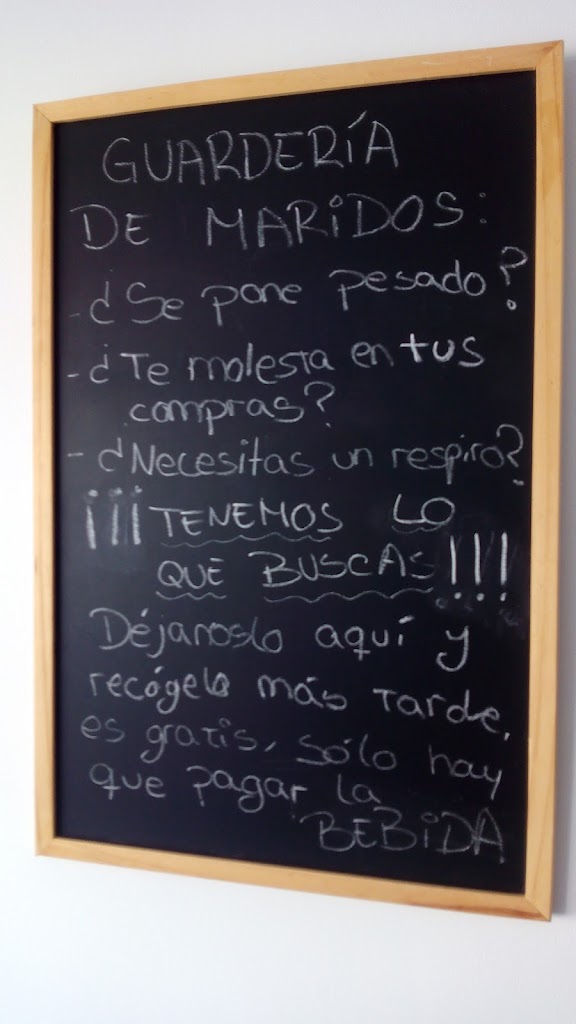 GUARDERÍA
DE MARIDOS:
- ¿Se pone pesado?
- ¿Te molesta en tus
compras?
- ¿Necesitas un respiro?
¡¡¡TENEMOS LO
QUE BUSCAS!!!
Déjanoslo aquí y
recógelo más tarde,
es gratis, sólo hay
que pagar la
BEBIDA